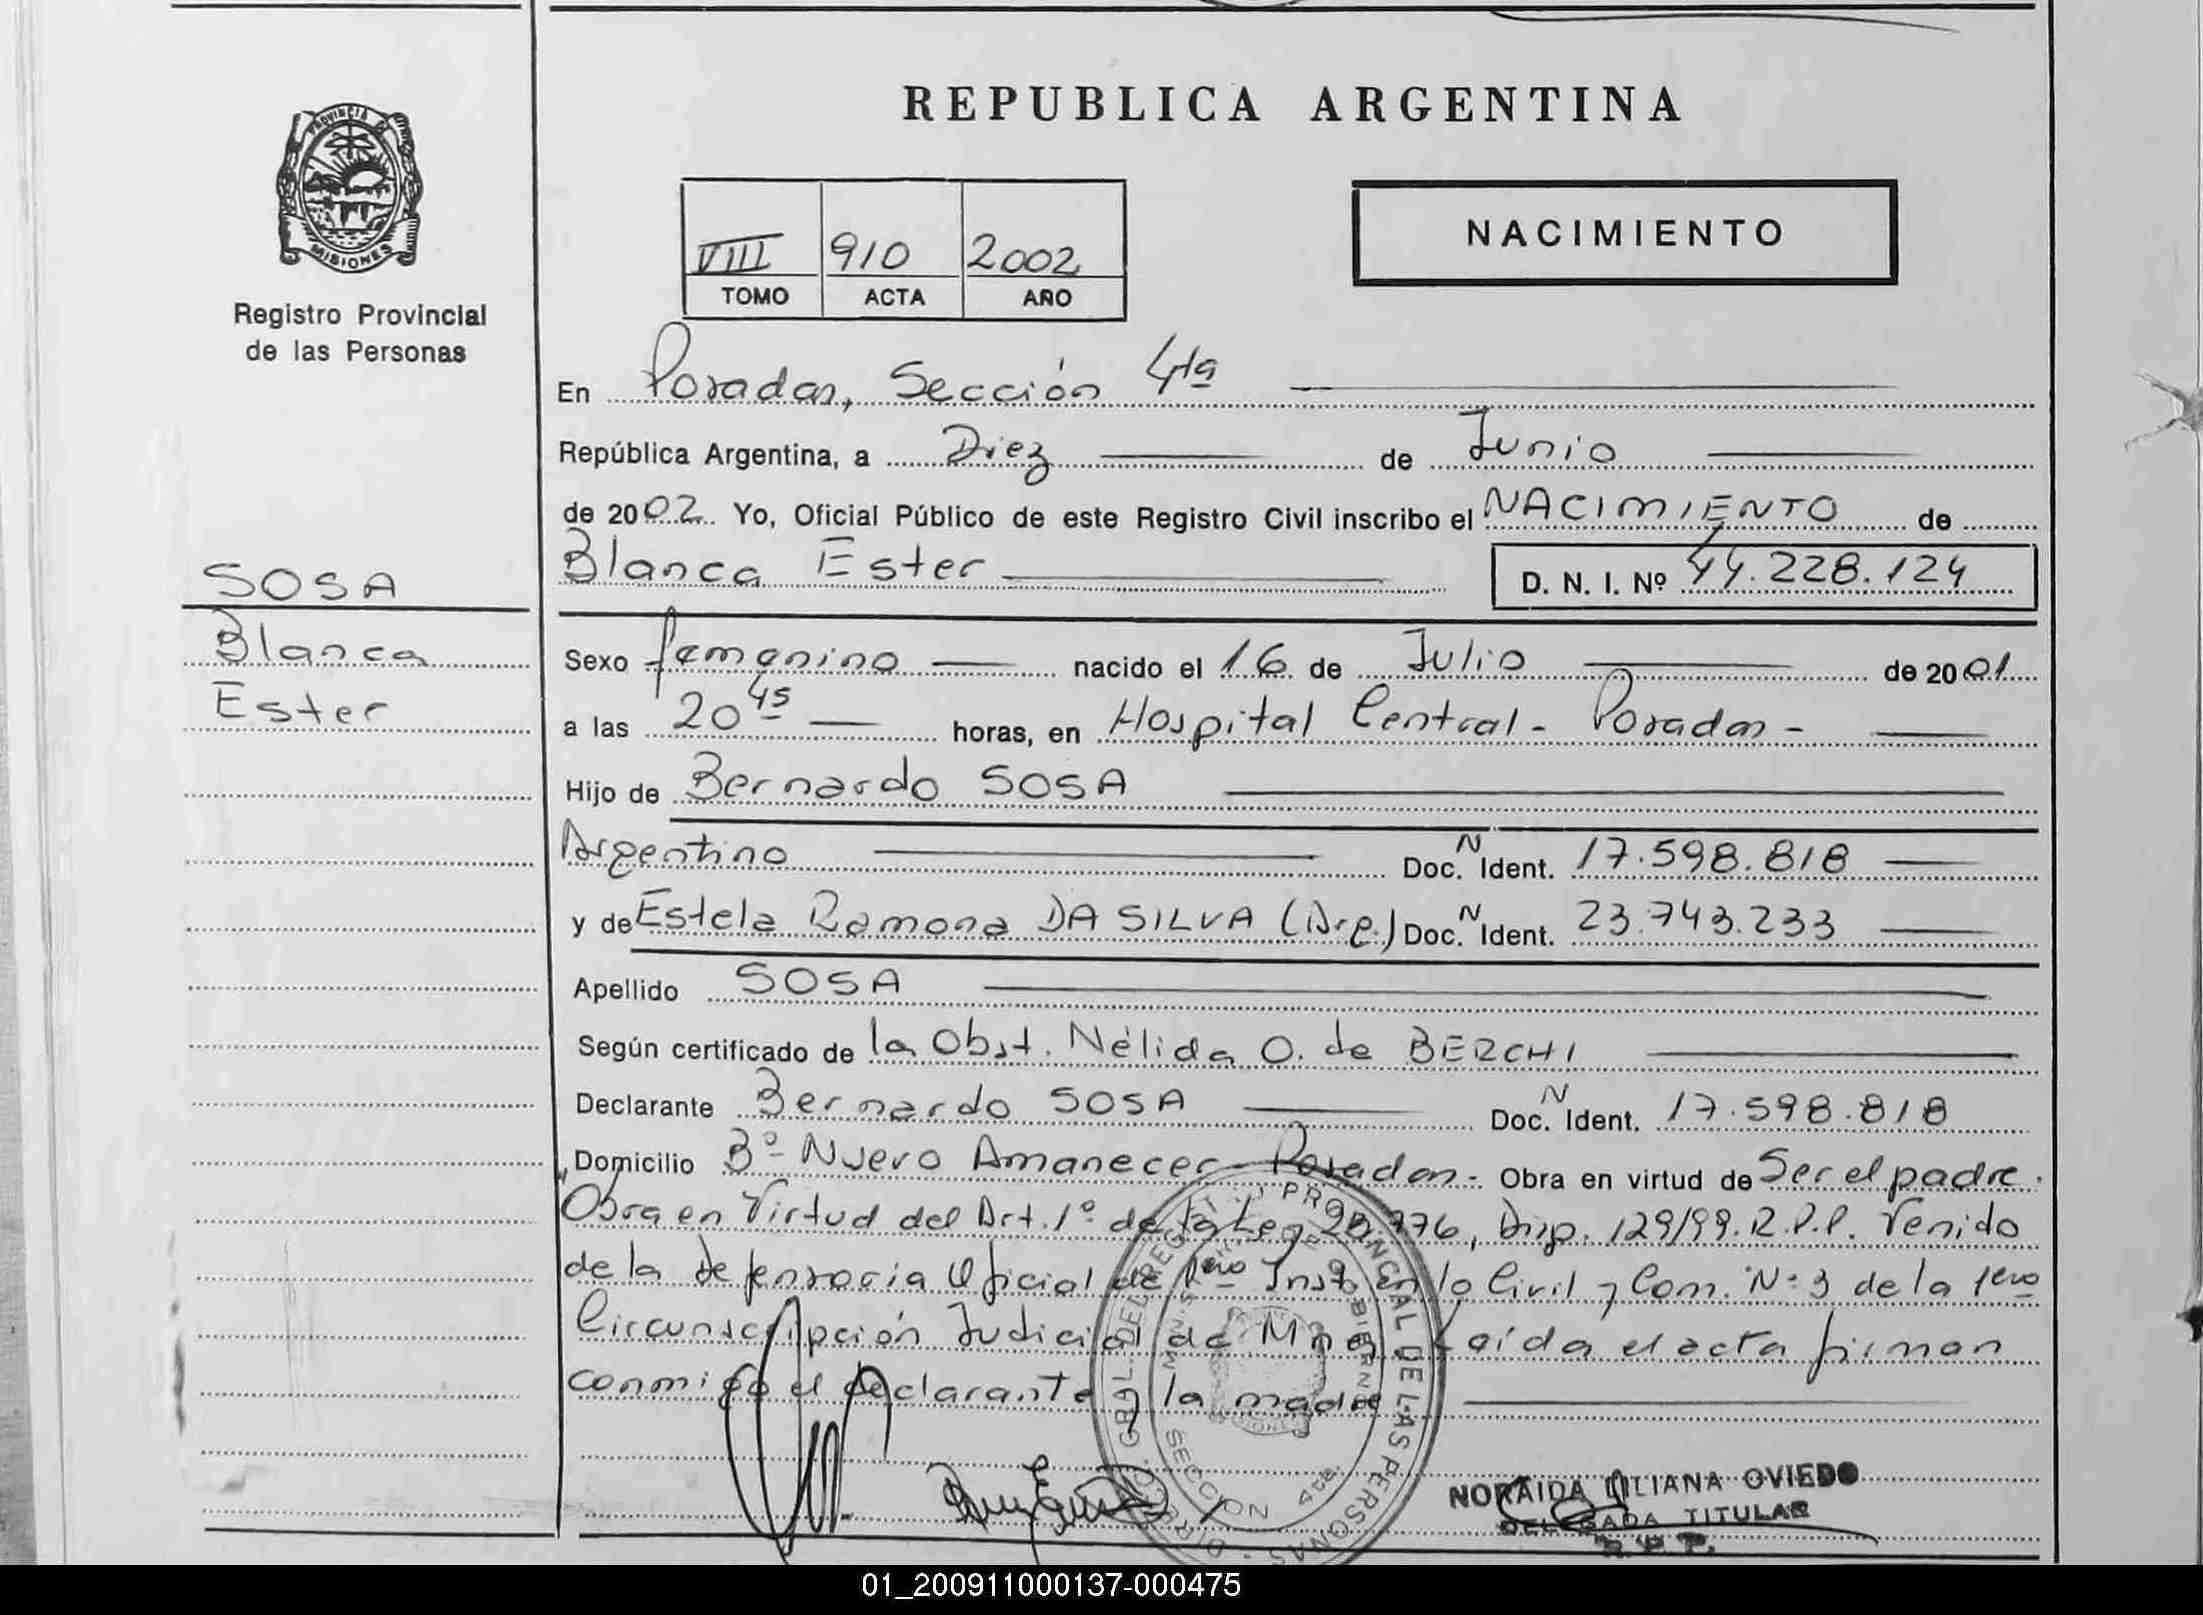 REPUBLICA ARGENTINA
PROVINCIA DE
MISIONES
Registro Provincial
de las Personas
NACIMIENTO
VIII 910 2002
TOMO ACTA AÑO
En Posadas, Sección 4ta
República Argentina, a Diez de Junio
de 2002. Yo, Oficial Público de este Registro Civil inscribo el NACIMIENTO de
Blanca Ester D. N. I. Nº 44.228.124
SOSA
Blanca
Ester
Sexo femenino nacido el 16 de Julio de 2001
a las 20 45 horas, en Hospital Central - Posadas -
Hijo de Bernardo SOSA
Argentino Doc. N Ident. 17.598.818
y de Estela Ramona DA SILVA (Arg.) Doc. N Ident. 23.743.233
Apellido SOSA
Según certificado de la Obst. Nélida O. de BERCHI
Declarante Bernardo SOSA Doc. N Ident. 17.598.818
Domicilio Bº Nuevo Amanecer - Posadas - Obra en virtud de Ser el padre.
Obra en Virtud del Art. 1º de la Ley 20.776, Disp. 129/99. R.P.P. Venido
de la Defensoría Oficial de 1era Inst. en lo Civil y Com. Nº 3 de la 1era
Circunscripción Judicial de Mnes. Leída el acta firman
conmigo el declarante y la madre
DIREC. GRAL. DEL REGISTRO PROVINCIAL DE LAS PERSONAS
MINISTERIO DE GOBIERNO
SECCION 4ta.
NORAIDA LILIANA OVIEDO
DELEGADA TITULAR
R. P. P.
01_200911000137-000475